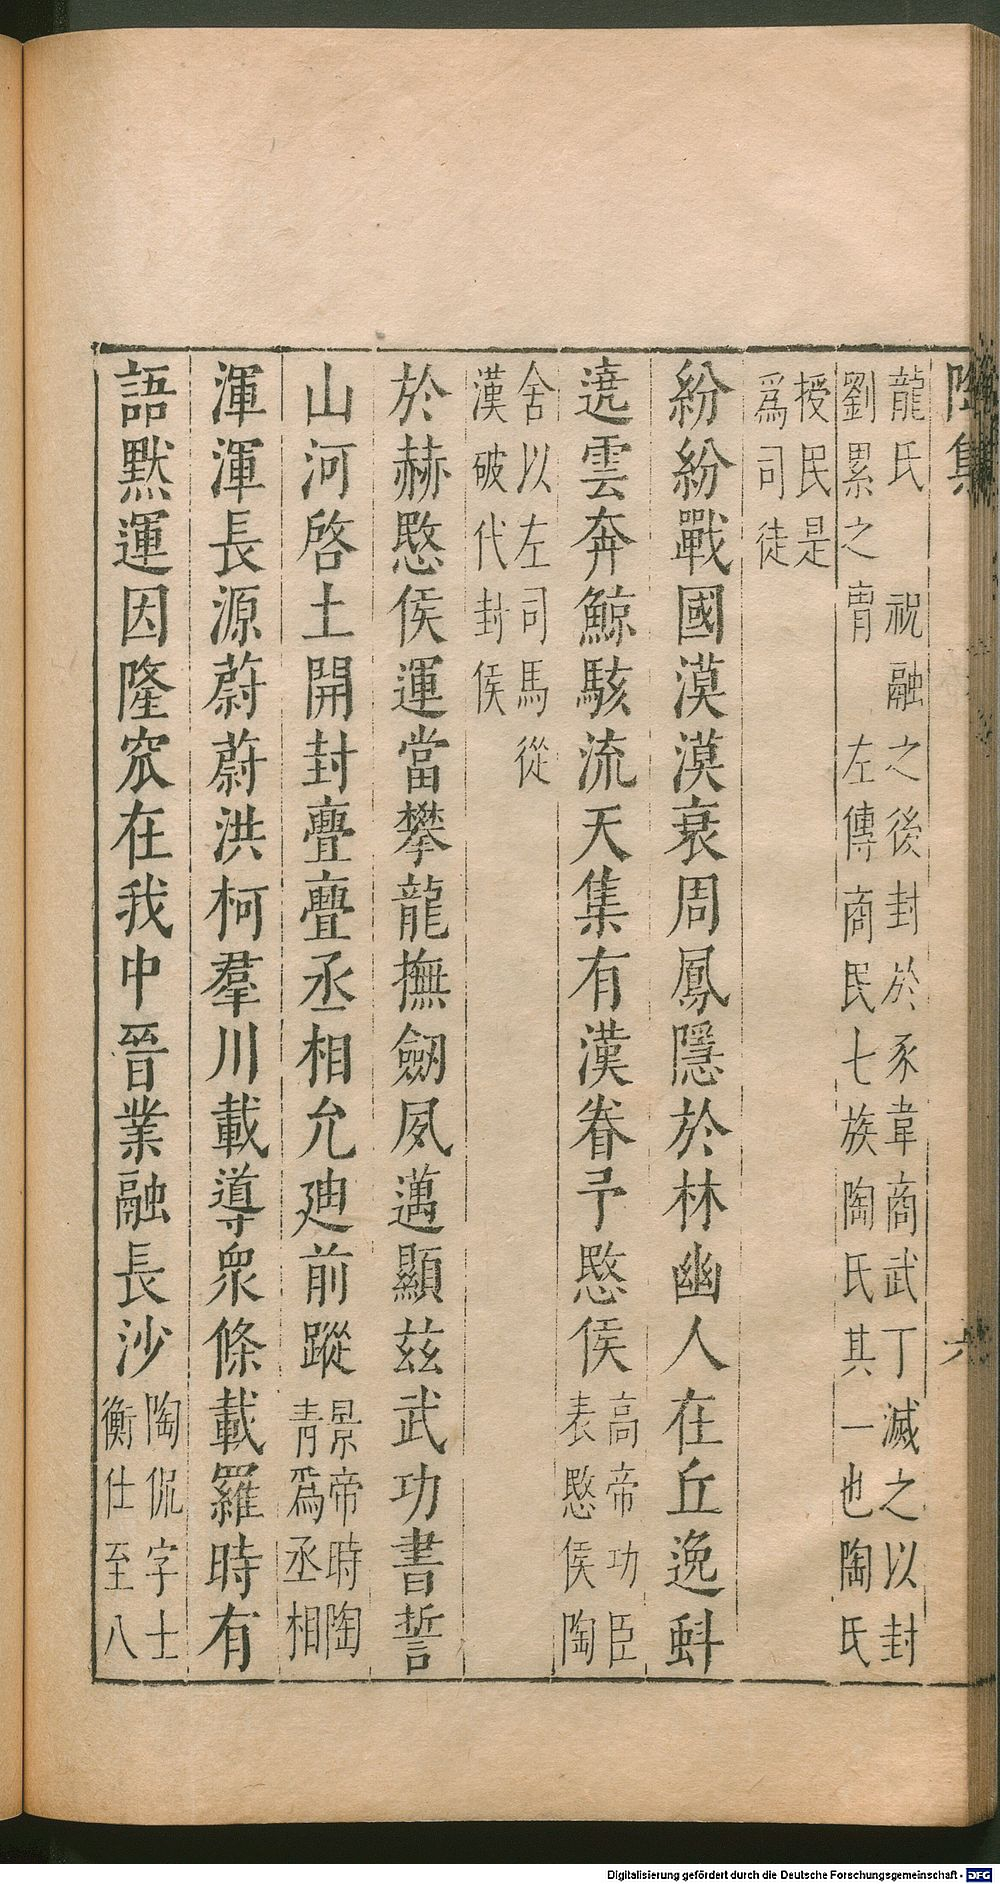 陶集
六
龍氏　祝融之後封於豕韋商武丁滅之以封
劉累之胄　左傳商民七族陶氏其一也陶氏
授民是
爲司徒
紛紛戰國漠漠衰周鳳隱於林幽人在丘逸虯
遶雲奔鯨駭流天集有漢眷予愍侯
高帝功臣
表愍侯陶
舍以左司馬從
漢破代封侯
於赫愍侯運當攀龍撫劒夙邁顯茲武功書誓
山河啓土開封亹亹丞相允迪前蹤
景帝時陶
青爲丞相
渾渾長源蔚蔚洪柯羣川載導衆條載羅時有
語默運因隆窊在我中晉業融長沙
陶侃字士
衡仕至八
Digitalisierung gefördert durch die Deutsche Forschungsgemeinschaft - DFG